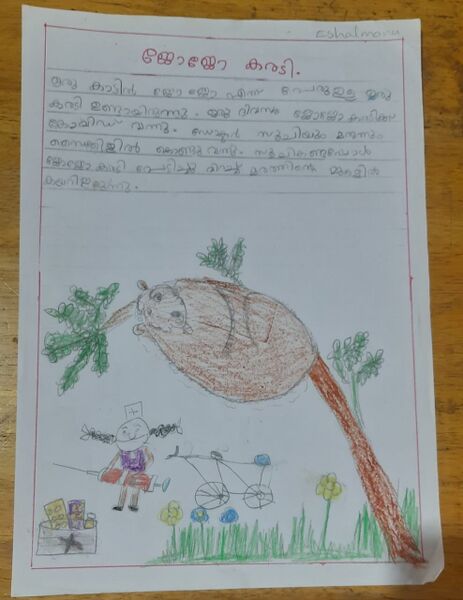 Eshalmaria
ജോജോ കരടി.
ഒരു കാട്ടിൽ ജോജോ എന്ന് പേരുള്ള ഒരു
കരടി ഉണ്ടായിരുന്നു. ഒരു ദിവസം ജോജോ കരടിക്ക്
കോവിഡ് വന്നു. ഡോക്ടർ സൂചിയും മരുന്നും
സൈക്കിളിൽ കൊണ്ടു വന്നു. സൂചികണ്ടപ്പോൾ
ജോജോ കരടി പേടിച്ചു വിറച്ചു മരത്തിന്റെ മുകളിൽ
കയറിയിരുന്നു.